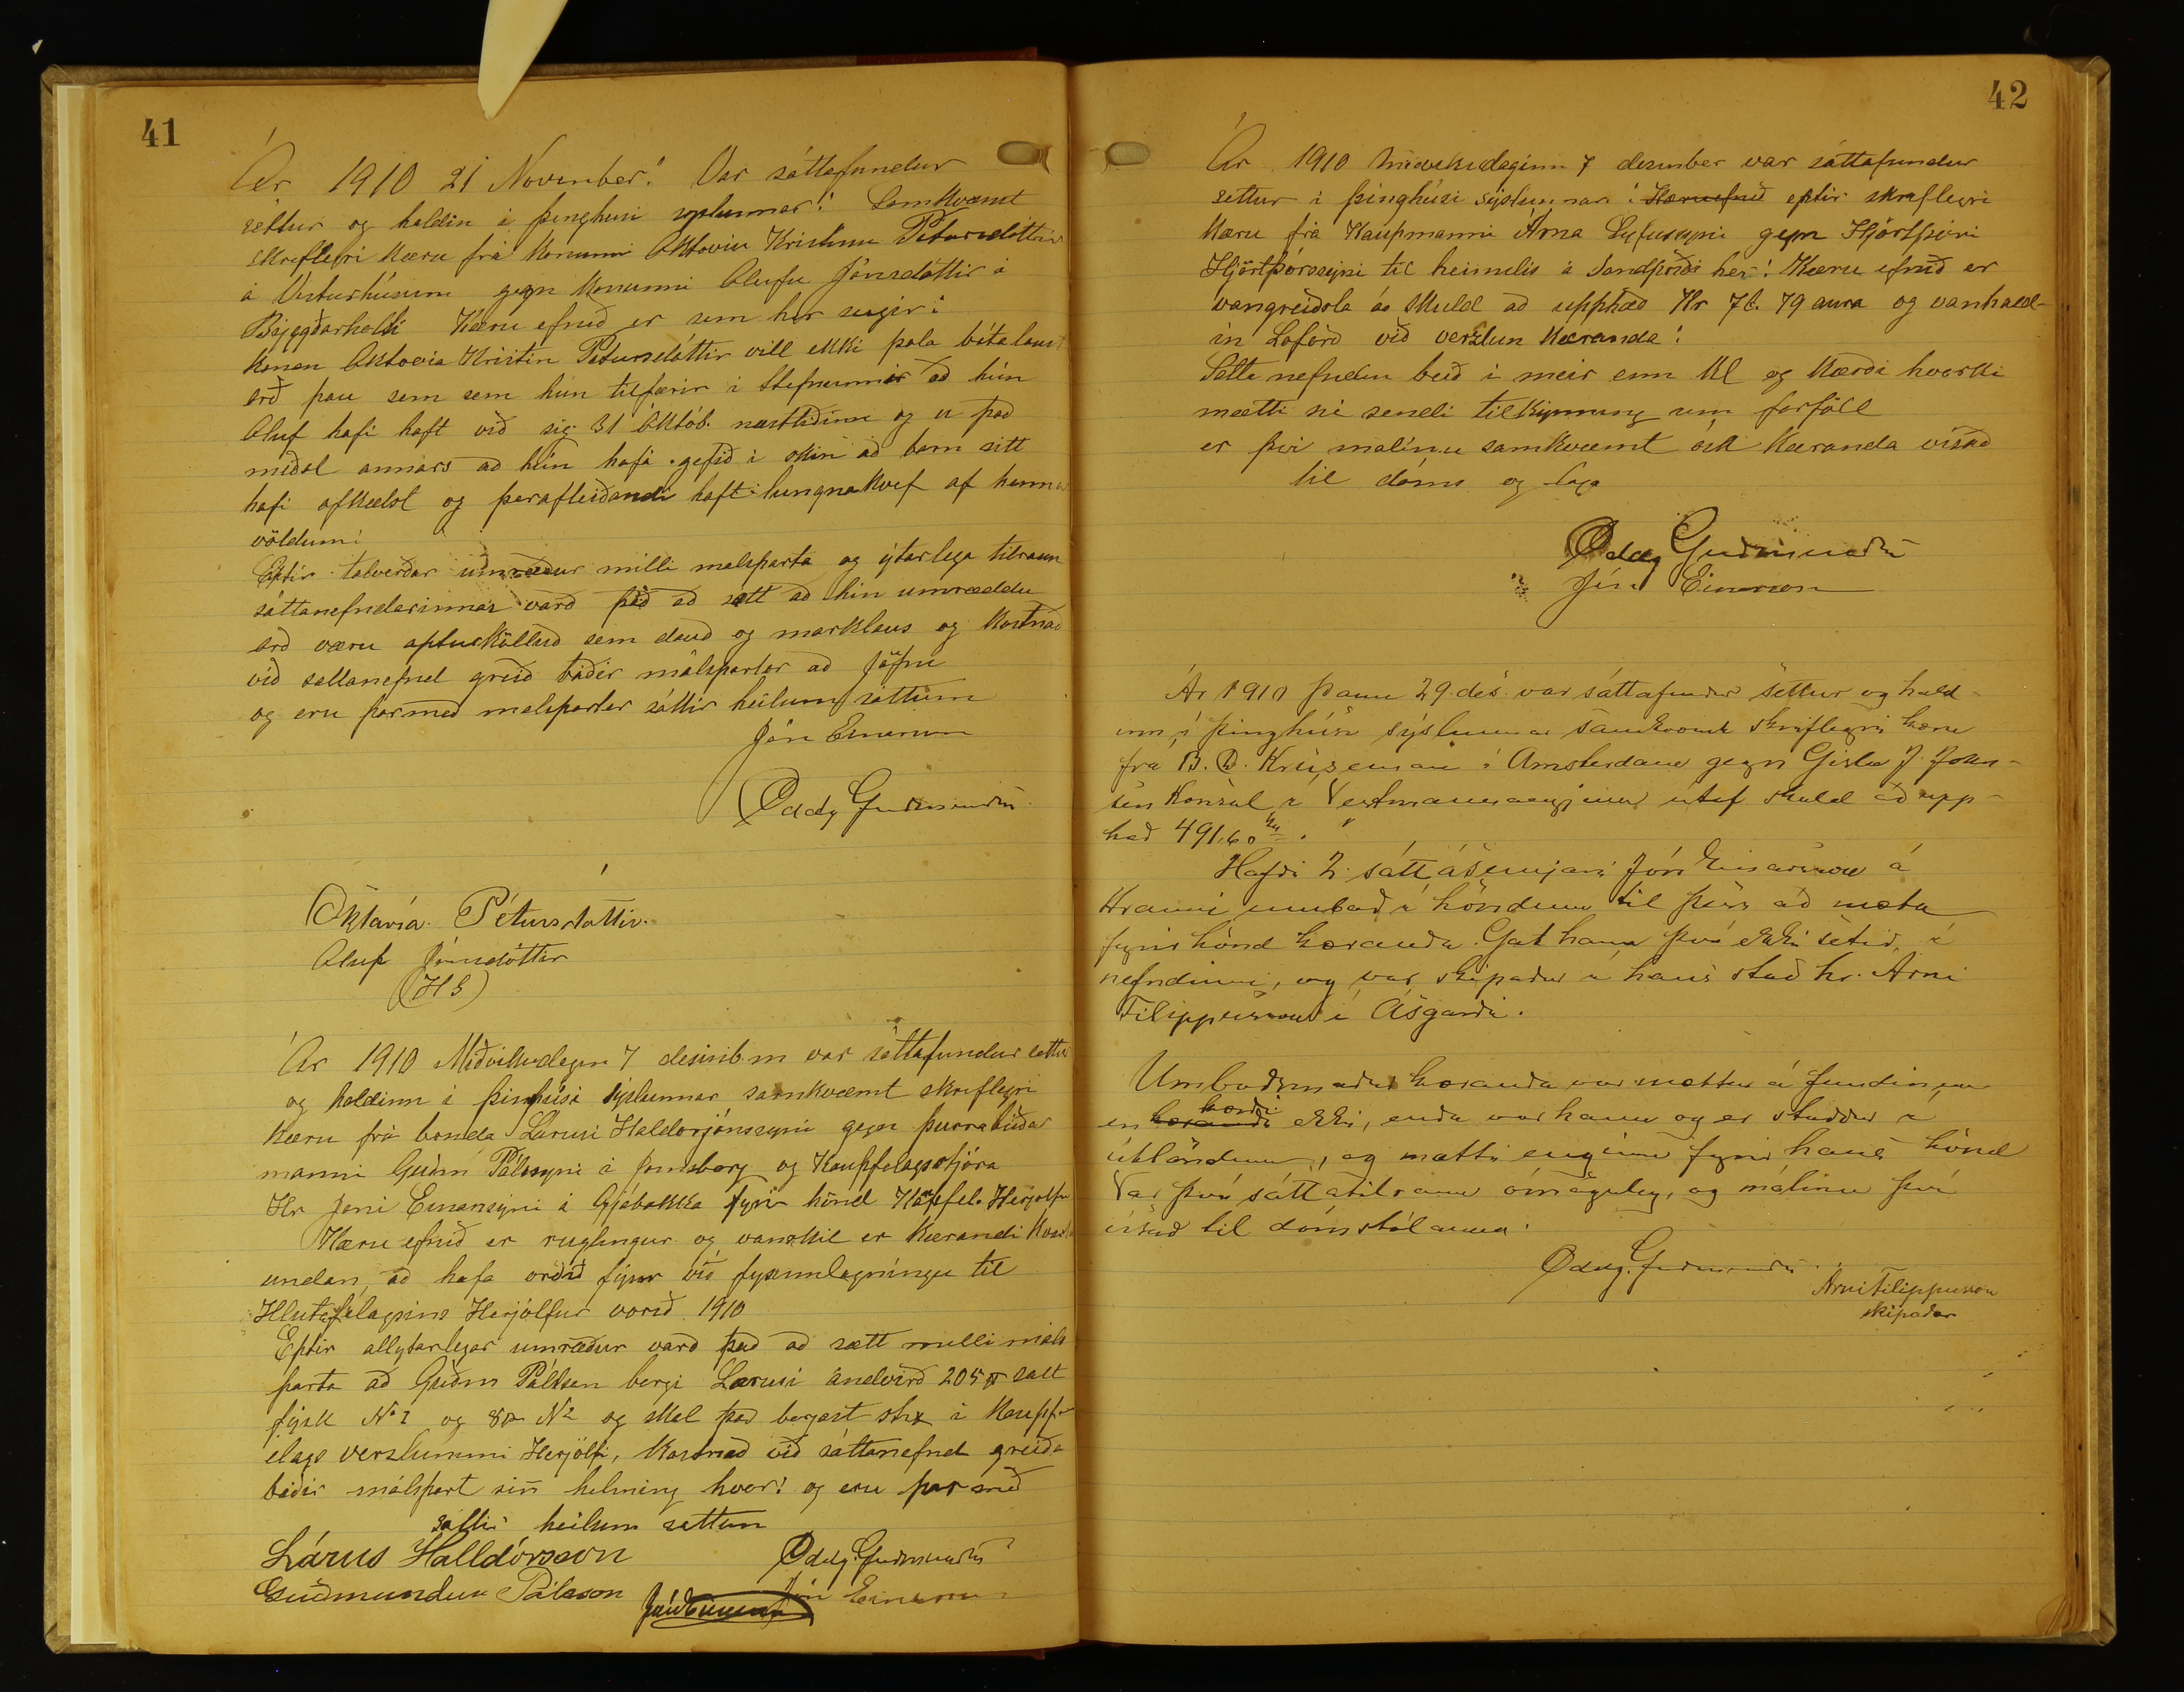 41
Ár 1910 21 November! Var sáttafundur
settur og haldin i þinghusi syslunnar! Samkvæmt
skreflegri kæru frá konunni Oktoviu Kristinu Pétursdóttir
á Vesturhúsum gegn konunni Olufu Jónsdóttir á
Byggðarholti Kæru efnið er sem her segir:
konan Oktovia Kristin Petursdóttir vill ekki þola bótalaust
orð þau sem sem hun tilfærir i Stefnunnir að hún
Oluf hafi haft við sig 31 Októb. næstliðinn og er það
meðal annars að hún hafi gefið i skin að barn sitt
hafi afkælst og þarafleiðandi haft lungnakvef af hennar
völdum:
Eptir talverðar umræður milli malsparta og ýtarlega tilraun
sáttanefndarinnar varð það að sætt að hin umræddu
orð væru apturkölluð sem dauð og marklaus og kostnað
við sattanefnd greið báðir málspartar að jöfnu
og eru þarmeð malspartar sáttir heilum sáttum
Jón Einarsson
Oddg Guðmundss
Oktavía Pétursdóttir
Oluf Jónsdóttir
(HS)
Ár 1910 Miðvikudagin 7 desinb.m var sáttafundur settur
og haldinn i þinghúsi sýslunnar samkvæmt skreflegri
kæru frá bonda Larusi Haldorjónssyni gegn þurrabúðar
manni Guðm Pálssyni á Jomsborg og Kaupfelagsstjóra
Hr Joni Einarsyni á Gjábakka fyrir hönd Kaupfel. Herjolfur
Kæru efnið er ruglingur og vanskil er kærandi kvarta
undan, að hafa orðið fyrir við fyskinnlagníngu til
Hlutafélagsins Herjólfur vorið 1910
Eptir allytarlegar umræður varð það að sætt milli máls
parta að Guðm Pálsen borgi Larusi andvirð 205 ℔ salt
fysk No 1 og 80 No 2 og skal það borgast strx i Kaupf-
elags verslunnini Herjólfi, Kostnað við sáttanefnd greiða
báðir málspart sin helming hvor! og eru þar með
sattir heilum sattum
Lárus Halldórsson Oddg. Guðmundss
Guðmundur Pálsson Jón Einarsson Jón Einarsson
42
Ár 1910 Miðvikudaginn 7 desember var sáttafundur
settur i þinghúsi sýslunnar i Kæruefnið eptir skreflegri
kæru frá Kaupmanni Árna Sigfussyni gegn Hjörtþóri
Hjörtþórssyni til heimilis á Sandprýði her! Kæru efnið er
vangreiðsla á skuld að upphæð Kr 78. 79 aura og vanhald-
in Loforð við verzlun Kæranda!
Sátta nefnden beið i meir enn Kl og kærði hvorki
mætti ne sendi tilkynning um forföll
er því malinu samkvæmt ósk kæranda vísað
til dóms og laga
Oddg Guðmundss
Jón Einarsson
Ár 1910 þann 29. des. var sáttafundur settur og hald-
inn i þinghúsi sýslunnar samkvæmt skriflegri kæru
frá B. D. Kruseman i Amsterdam gegn Gisla J. John-
sen konsul i Vestmannaeyjum útaf skuld að upp-
hæð 491,60 kr.
Hafði 2. sáttasemjari Jón Einarsson á
Hrauni umboð i höndum til þess að mæta
fyrir hönd kæranda. Gat hann því ekki setið i
nefndinni, og var skipaður i hans stað hr. Arni
Filippusson i Ásgarði.
Umboðsmaður kæranda var mættur á fundinum
en kærandi kærði ekki, enda var hann og er staddur i
útlöndum, og mætti enginn fyrir hans hönd
Var því sáttatilraun ómöguleg, og málinu því
vísað til dómstólanna.
Oddg. Guðmundss
Arni Filippusson
skipaður